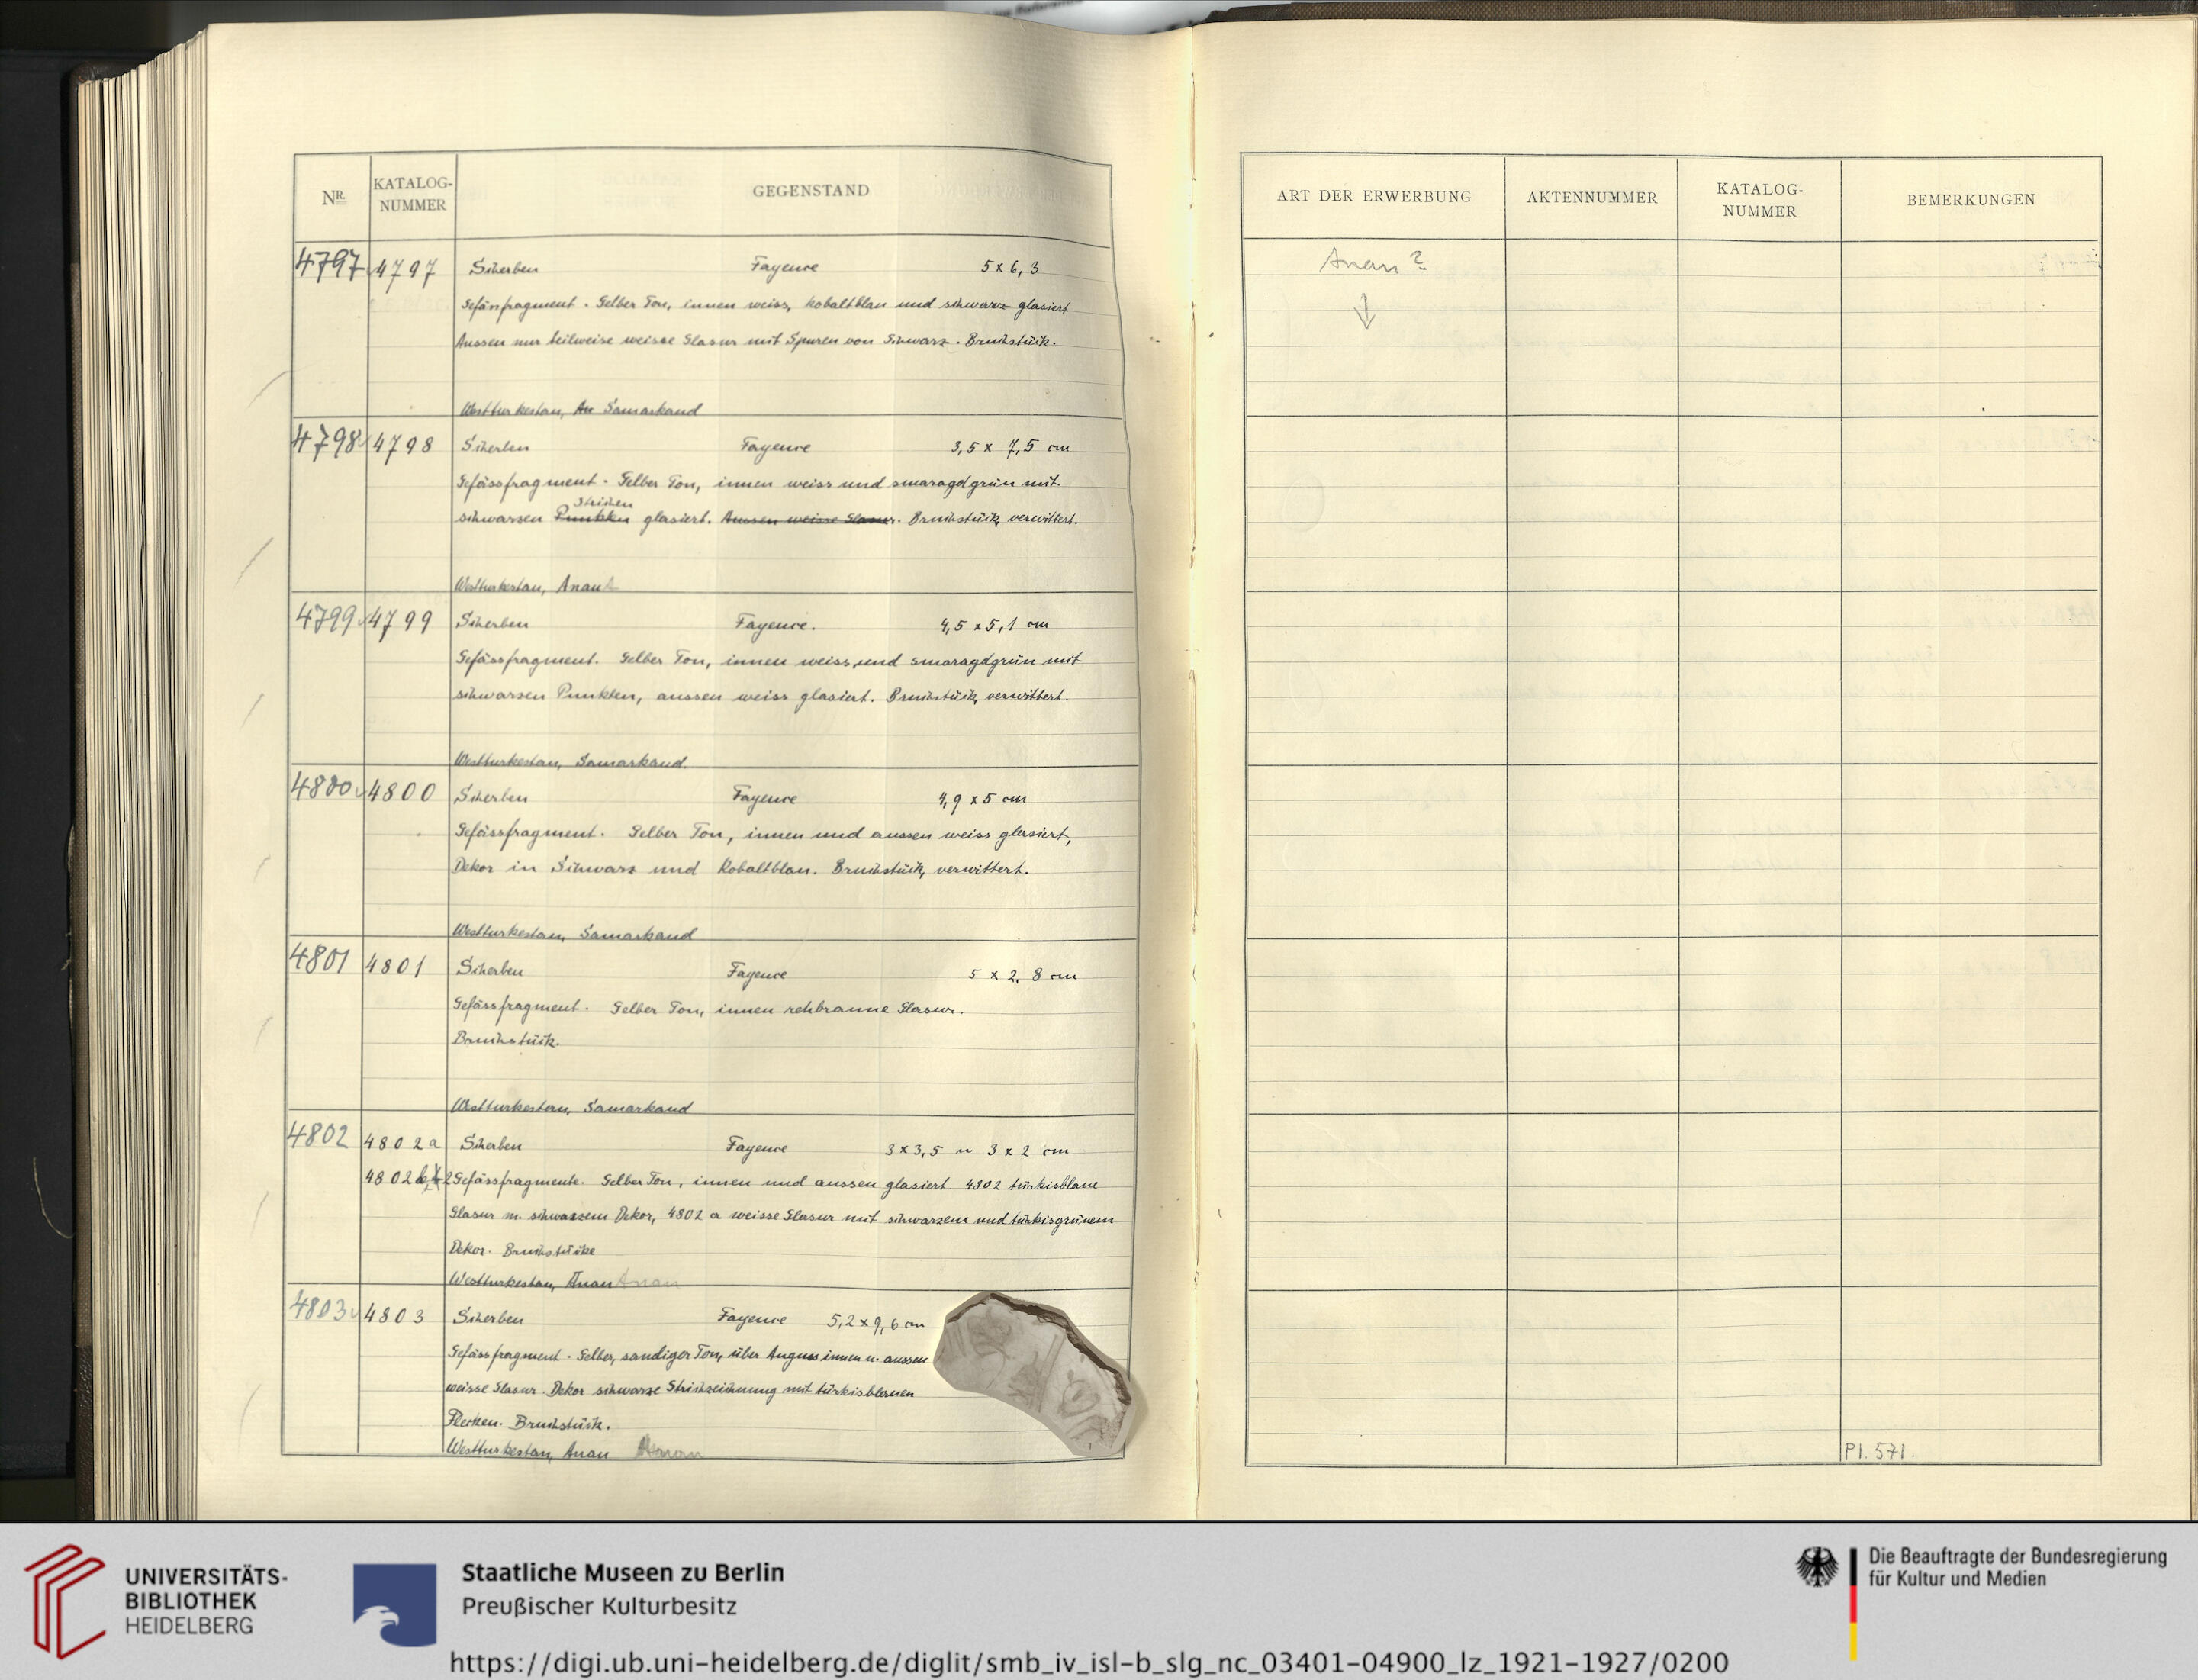 NR.
KATALOG-
NUMMER
GEGENSTAND
4797 4797 Scherben Fayence 5 x 6,3
Gefässfragment. Gelber Ton, innen weiss, kobaltblau und schwarz glasiert
Aussen nur teilweise weisse Glasur mit Spuren von Schwarz. Bruchstück.
Westturkestan, An Samarkand
4798 4798 Scherben Fayence 3,5 x 7,5 cm
Gefässfragment. Gelber Ton, innen weiss und smaragdgrün mit
Strichen
schwarzen Punkten glasiert. Aussen weisse Glasur. Bruchstück, verwittert.
Westturkestan, Anau
4799 4799 Scherben Fayence. 4,5 x 5,1 cm
Gefässfragment. Gelber Ton, innen weiss, und smaragdgrün mit
schwarzen Punkten, aussen weiss glasiert. Bruchstück, verwittert.
Westturkestan, Samarkand.
4800 4800 Scherben Fayence 4,9 x 5 cm
Gefässfragment. Gelber Ton, innen und aussen weiss glasiert,
Dekor in Schwarz und Kobaltblau. Bruchstück, verwittert.
Westturkestan, Samarkand
4801 4801 Scherben Fayence 5 x 2,8 cm
Gefässfragment. Gelber Ton, innen rehbraune Glasur.
Bruchstück.
Westturkestan, Samarkand
4802 4802 a Scherben Fayence 3 x 3,5 u 3 x 2 cm
4802 Gefässfragmente. Gelber Ton, innen und aussen glasiert. 4802 türkisblaue
Glasur m. schwarzem Dekor, 4802 a weisse Glasur mit schwarzem und türkisgrünem
Dekor. Bruchstücke
Westturkestan, Anau Anau
4803 4803 Scherben Fayence 5,2 x 9,6 cm
Gefässfragment. Gelber, sandiger Ton, über Anguss innen u. aussen
weisse Glasur. Dekor schwarze Strichzeichnung mit türkisblauen
Flecken. Bruchstück.
Westturkestan, Anau Anau
ART DER ERWERBUNG
AKTENNUMMER
KATALOG-
NUMMER
BEMERKUNGEN
Anau ?
Pl. 571.
UNIVERSITÄTS-
BIBLIOTHEK
HEIDELBERG
Staatliche Museen zu Berlin
Preußischer Kulturbesitz
Die Beauftragte der Bundesregierung
für Kultur und Medien
https://digi.ub.uni-heidelberg.de/diglit/smb_iv_isl-b_slg_nc_03401-04900_lz_1921-1927/0200